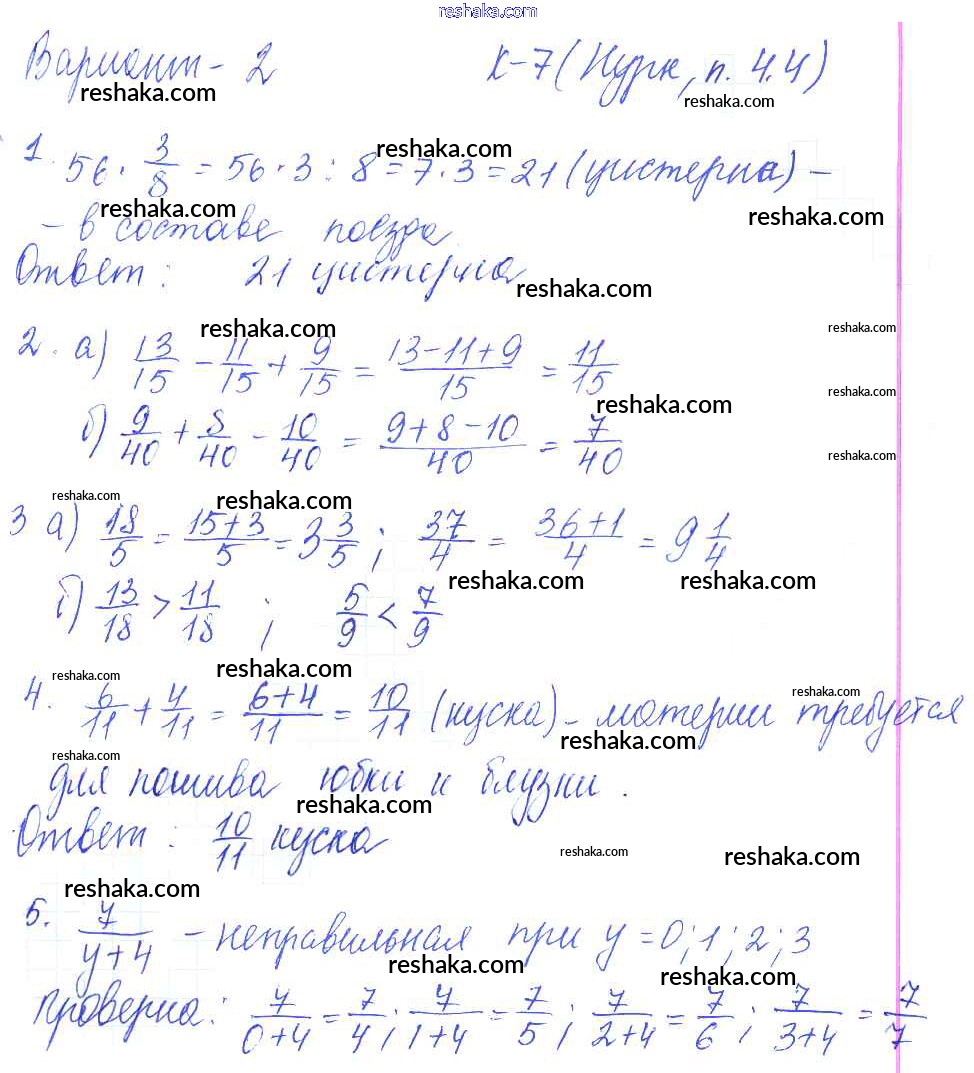 reshaka.com
Вариант - 2 К-7 (Нурк, п. 4.4)
reshaka.com reshaka.com
reshaka.com
1. 56 · 3/8 = 56 · 3 : 8 = 7 · 3 = 21 (цистерна) -
reshaka.com reshaka.com
- в составе поезда.
Ответ: 21 цистерна
reshaka.com
reshaka.com reshaka.com
2. а) 13/15 - 11/15 + 9/15 = (13-11+9)/15 = 11/15
reshaka.com
reshaka.com
б) 9/40 + 8/40 - 10/40 = (9+8-10)/40 = 7/40
reshaka.com
reshaka.com reshaka.com
3 а) 18/5 = (15+3)/5 = 3 3/5 ; 37/4 = (36+1)/4 = 9 1/4
reshaka.com reshaka.com
б) 13/18 > 11/18 ; 5/9 < 7/9
reshaka.com reshaka.com
4. 6/11 + 4/11 = (6+4)/11 = 10/11 (куска) - материи требуется
reshaka.com
reshaka.com
reshaka.com
для пошива юбки и блузки.
reshaka.com
Ответ: 10/11 куска
reshaka.com reshaka.com
reshaka.com
5. 7/(y+4) - неправильная при y = 0; 1; 2; 3
reshaka.com reshaka.com
проверка: 7/(0+4) = 7/4; 7/(1+4) = 7/5; 7/(2+4) = 7/6; 7/(3+4) = 7/7